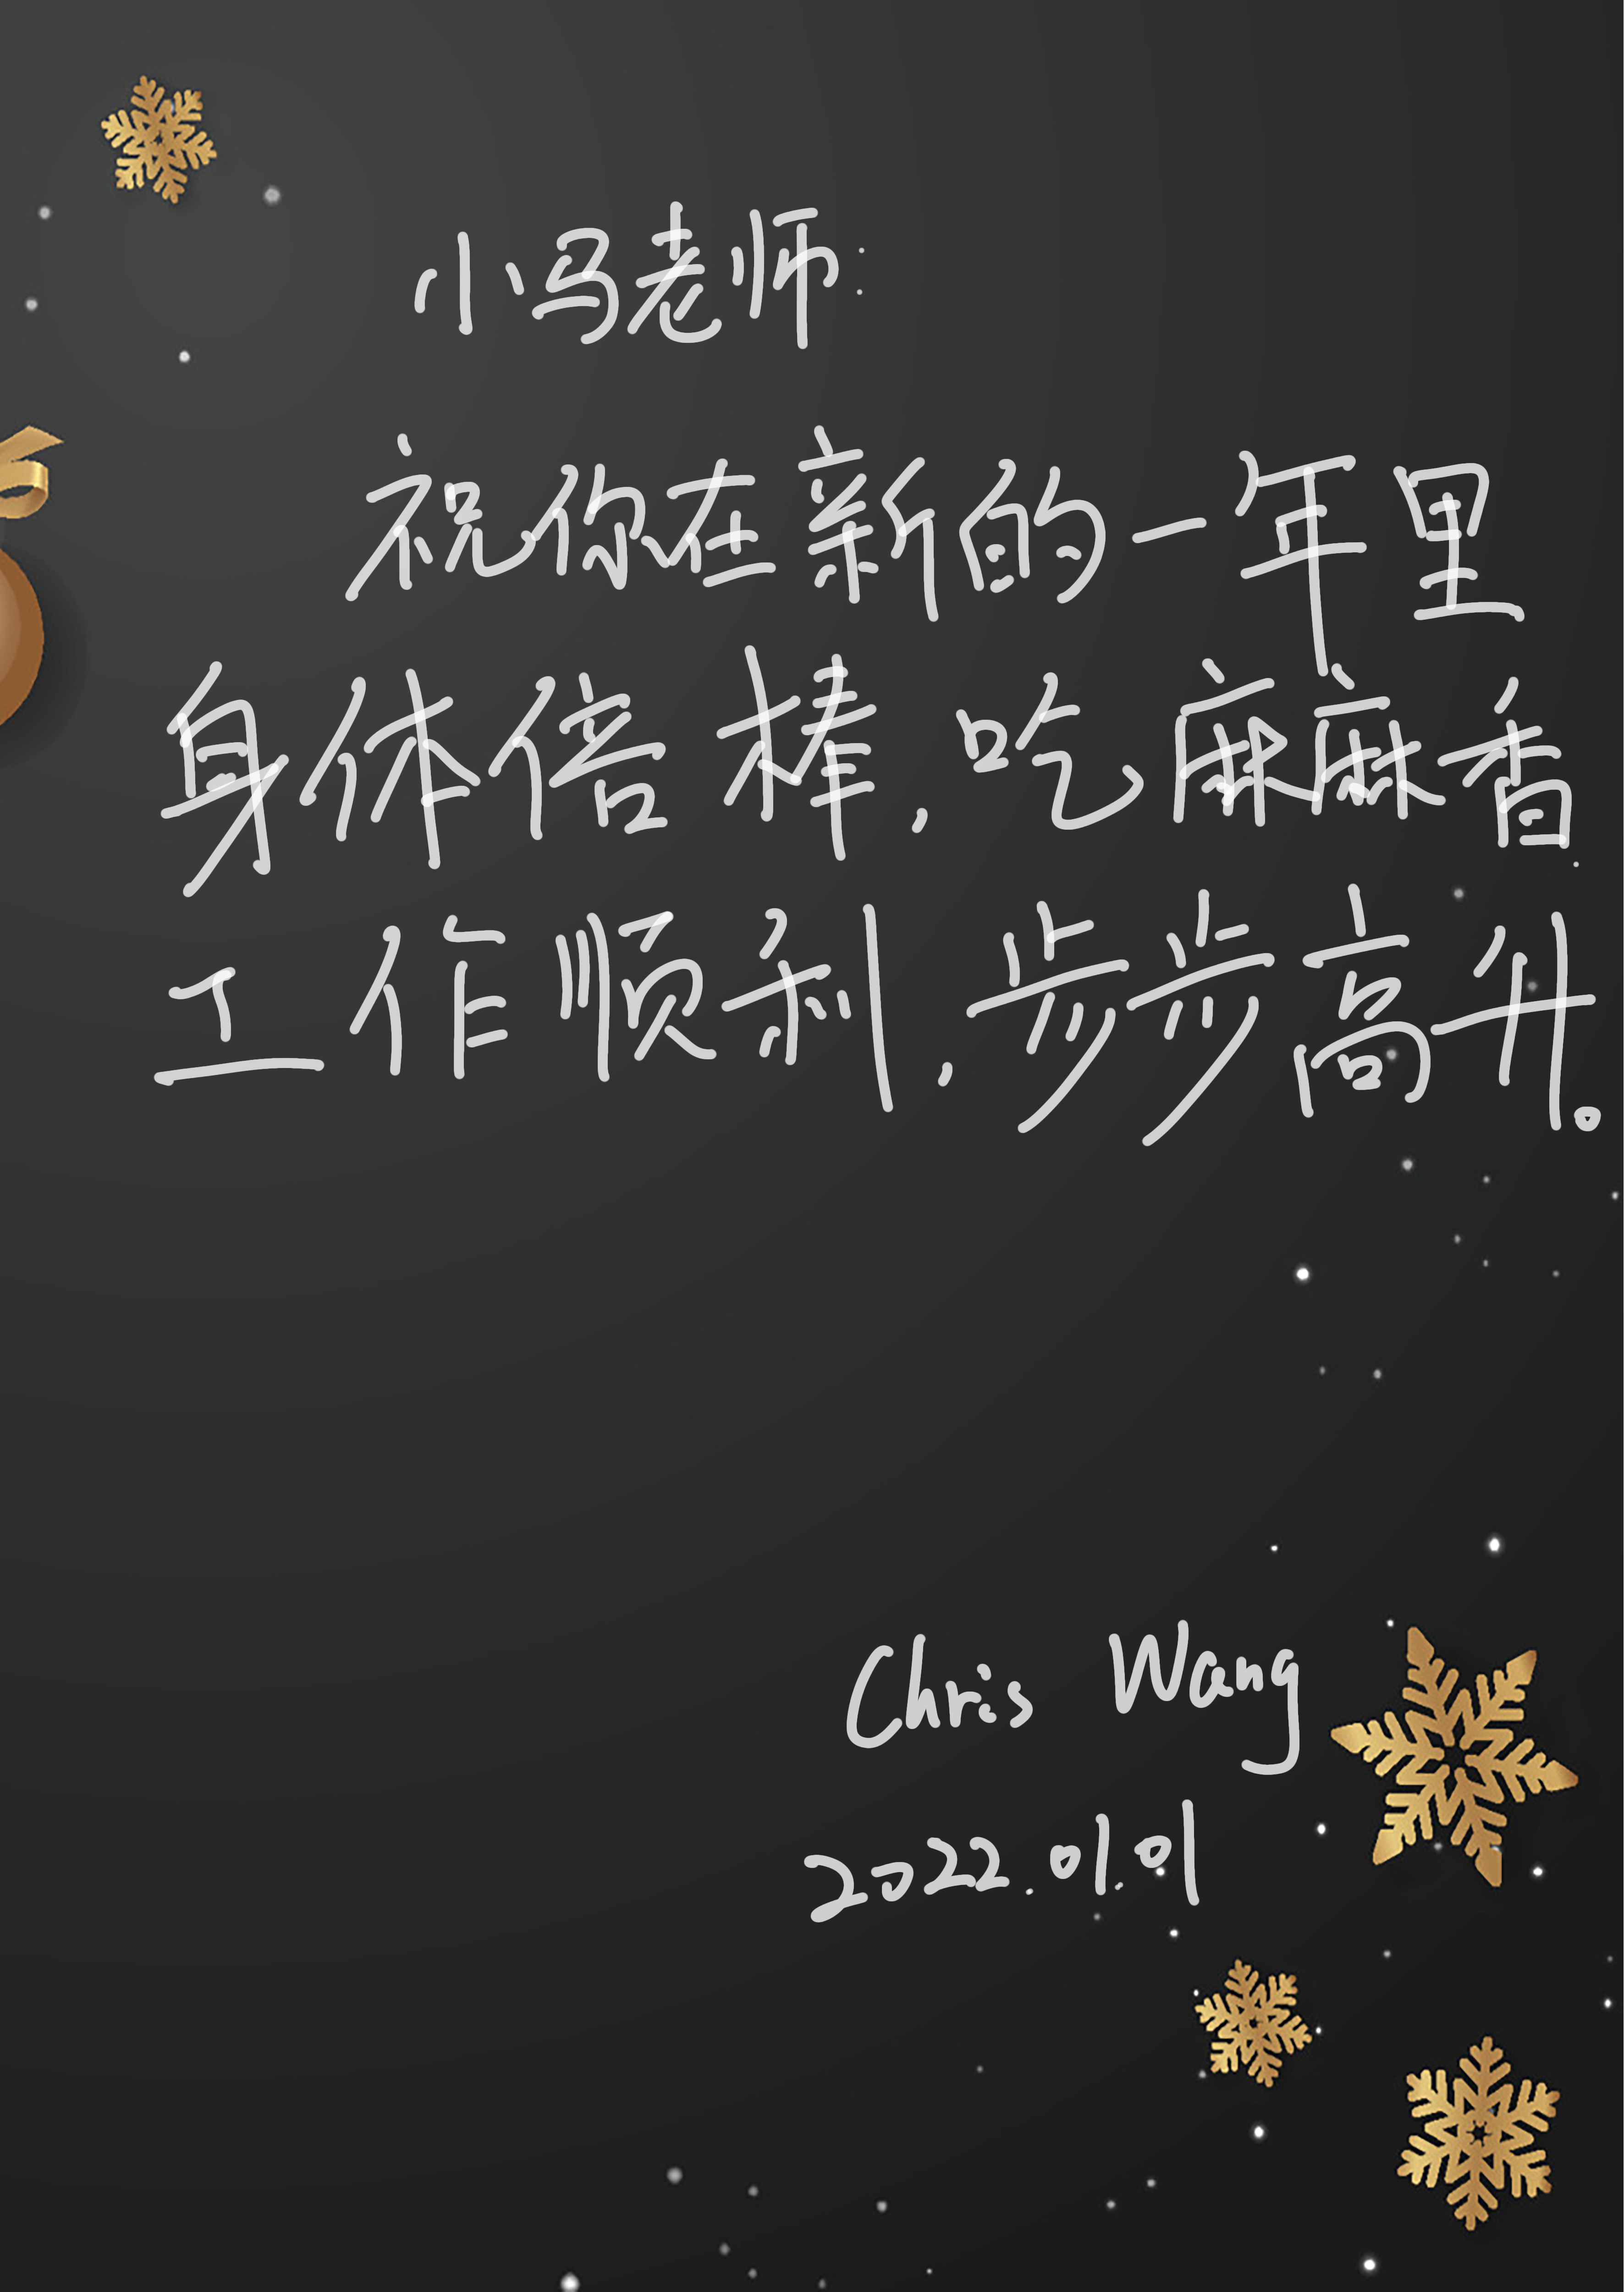 小马老师:
祝你在新的一年里
身体倍棒,吃麻麻香.
工作顺利,步步高升。
Chris Wang
2022.01.01